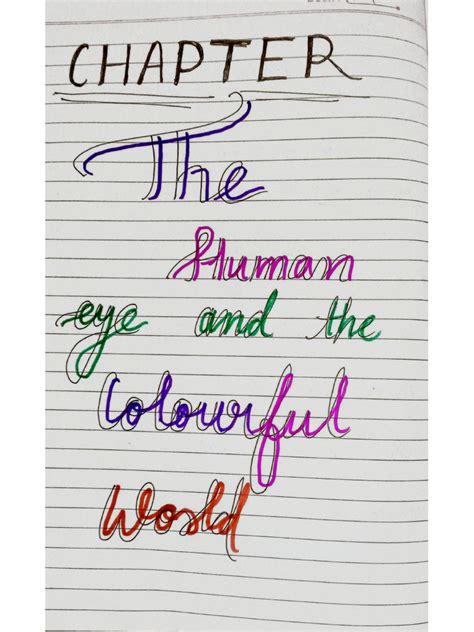 CHAPTER
The
Human
eye and the
Colourful
World